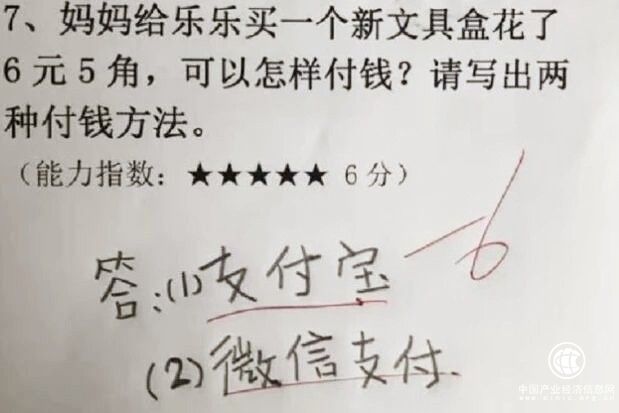 7、妈妈给乐乐买一个新文具盒花了
6元5角，可以怎样付钱？请写出两
种付钱方法。
（能力指数：★★★★★ 6分）
-6
答：(1)支付宝
(2)微信支付.
中国产业经济信息网
www.cinic.org.cn